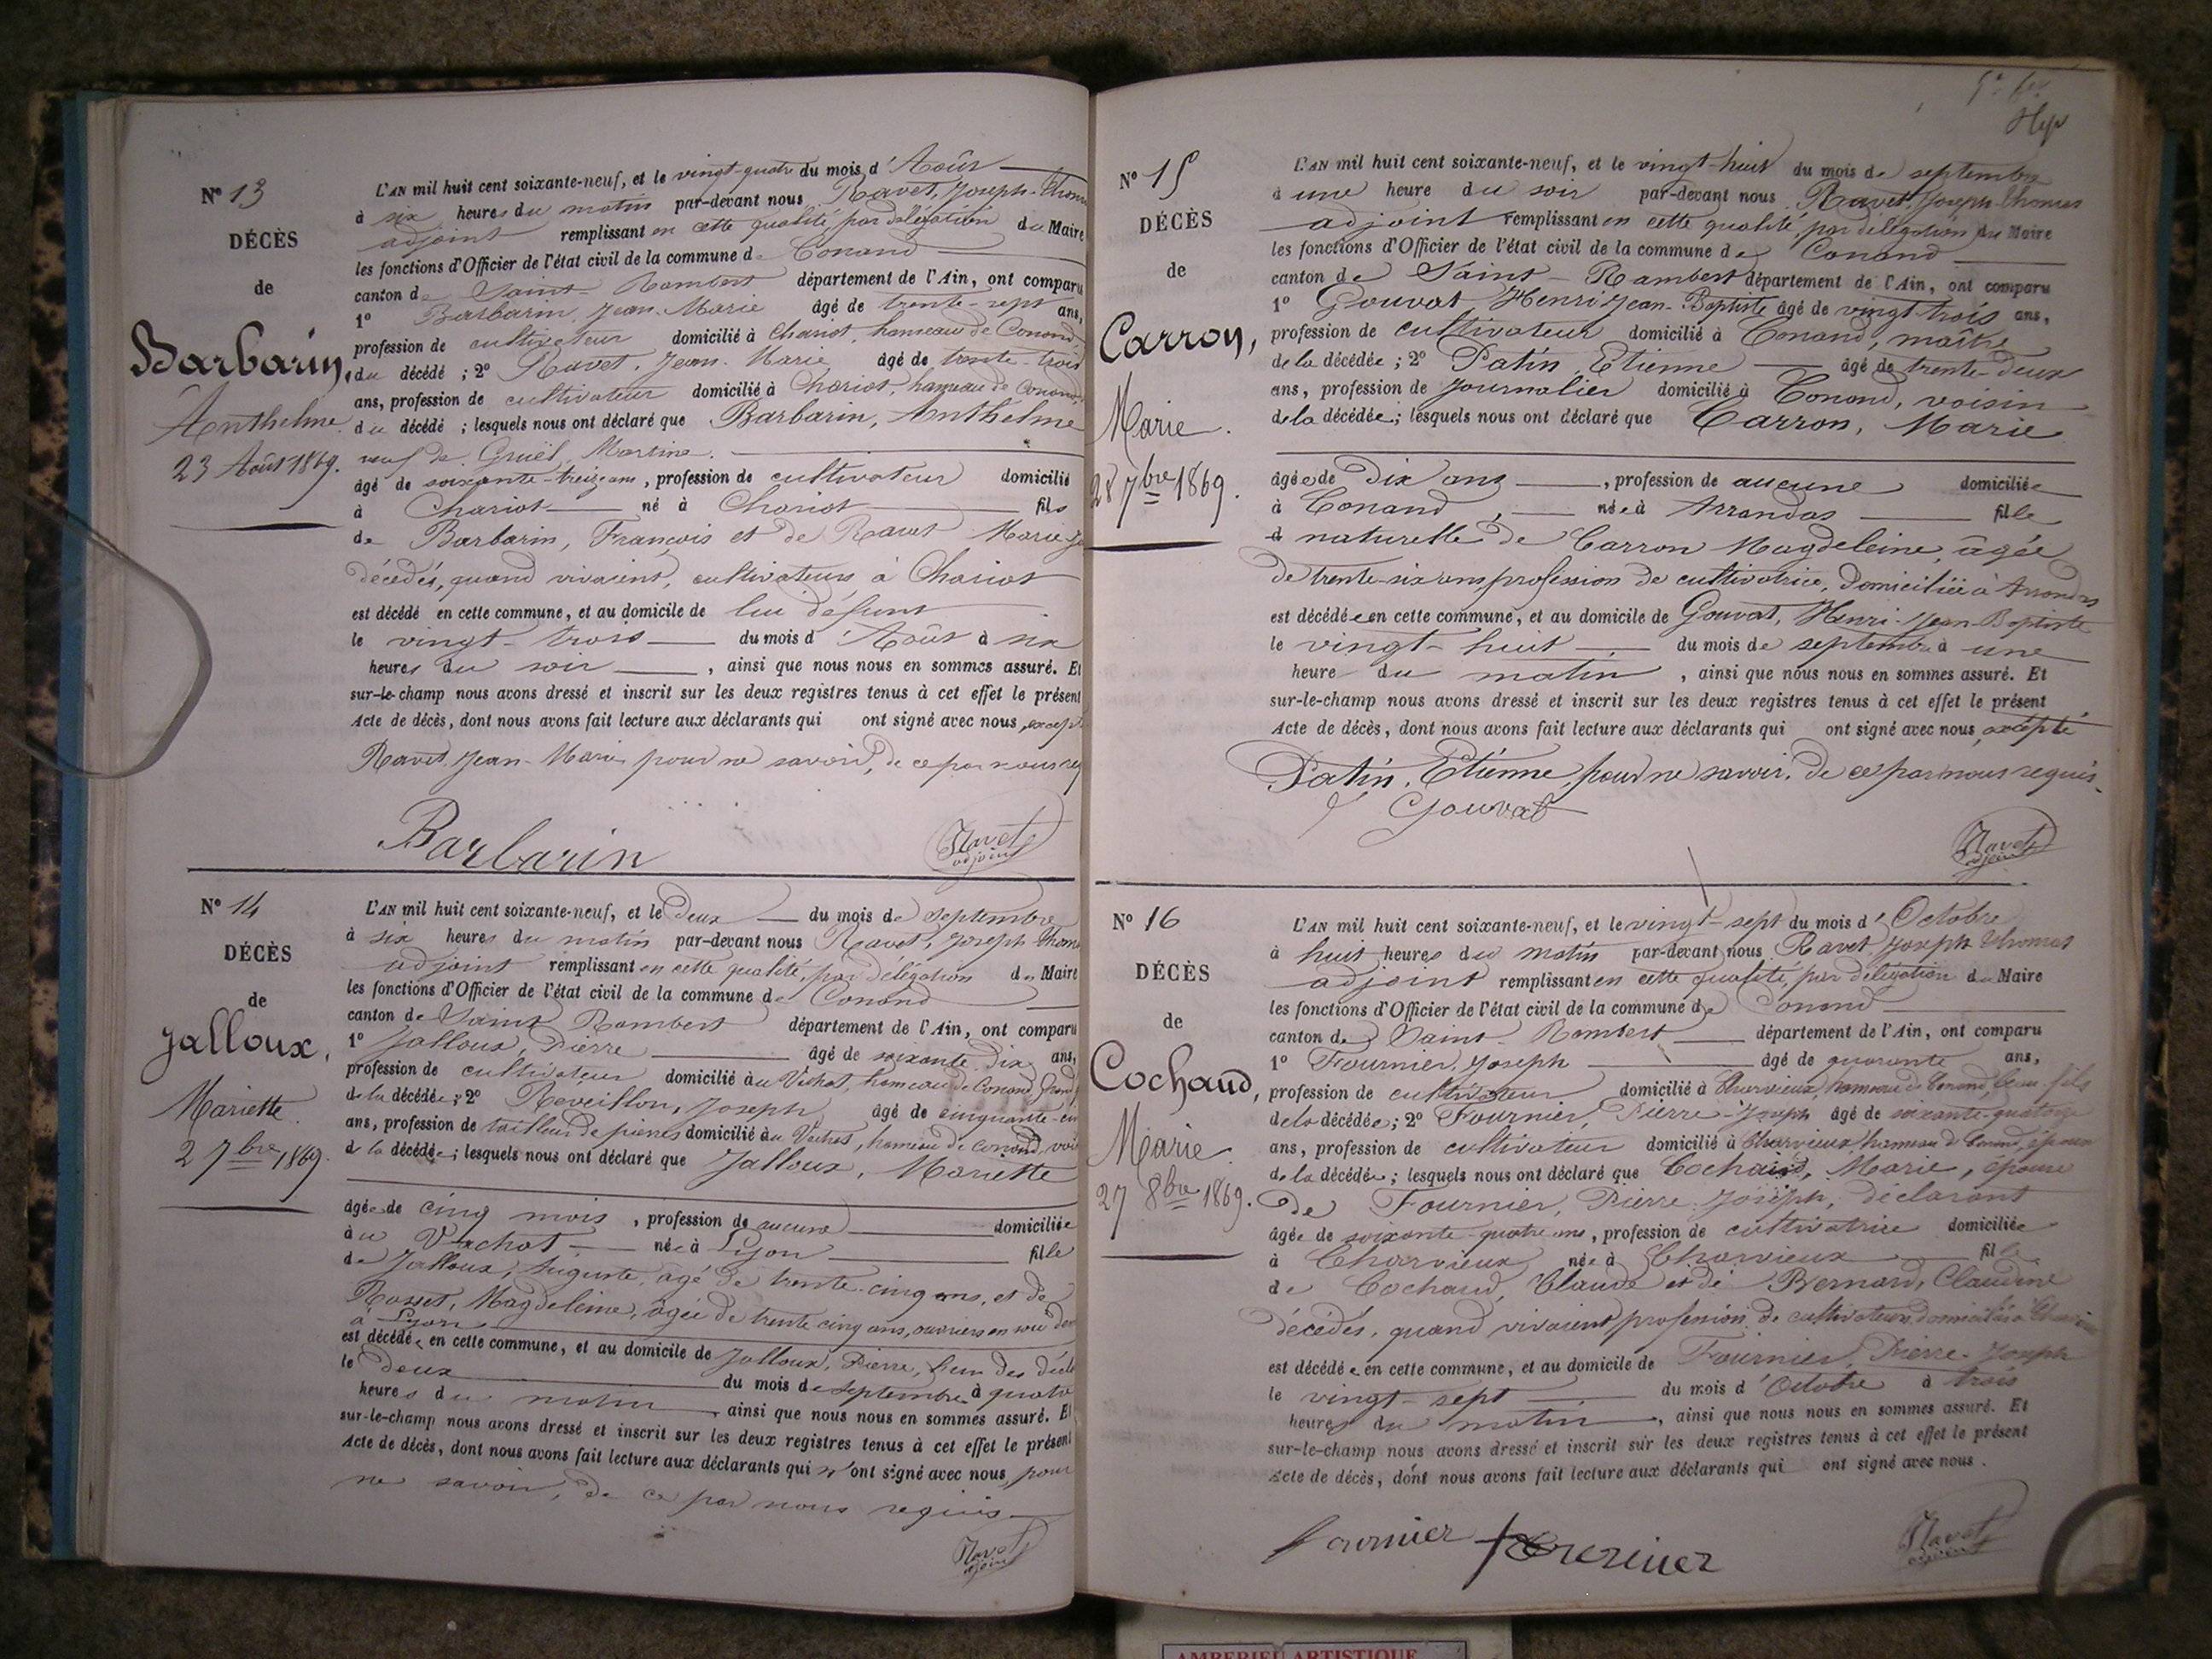 N° 13
DÉCÈS
de
Barbarin,
Anthelme
23 Août 1869.
L'AN mil huit cent soixante-neuf, et le vingt-quatre du mois d'Août
à six heures du matin par-devant nous Ravet, Joseph-Thomas
adjoint remplissant en cette qualité, par délégation du Maire
les fonctions d'Officier de l'état civil de la commune de Conand
canton de Saint-Rambert département de l'Ain, ont comparu
1° Barbarin, Jean-Marie âgé de trente-sept ans,
profession de cultivateur domicilié à Chariot, hameau de Conand,
du décédé ; 2° Ravet, Jean-Marie âgé de trente-trois
ans, profession de cultivateur domicilié à Chariot, hameau de Conand,
du décédé ; lesquels nous ont déclaré que Barbarin, Anthelme
veuf de Gruel, Martine.
âgé de soixante-treize ans, profession de cultivateur domicilié
à Chariot né à Chariot fils
de Barbarin, François et de Ravet Marie
décédés, quand vivaient, cultivateurs à Chariot
est décédé en cette commune, et au domicile de lui défunt
le vingt-trois du mois d'Août à six
heures du soir, ainsi que nous nous en sommes assuré. Et
sur-le-champ nous avons dressé et inscrit sur les deux registres tenus à cet effet le présent
Acte de décès, dont nous avons fait lecture aux déclarants qui ont signé avec nous, excepté
Ravet, Jean-Marie pour ne savoir, de ce par nous
Barbarin
Ravet
adjoint
N° 14
DÉCÈS
de
Jalloux,
Mariette
2 7bre 1869.
L'AN mil huit cent soixante-neuf, et le deux du mois de septembre
à six heures du matin par-devant nous Ravet, Joseph Thomas
adjoint remplissant en cette qualité, par délégation du Maire
les fonctions d'Officier de l'état civil de la commune de Conand
canton de Saint Rambert département de l'Ain, ont comparu
1° Jalloux, Pierre âgé de soixante-dix ans,
profession de cultivateur domicilié au Vachat, hameau de Conand,
de la décédée ; 2° Reveillon, Joseph âgé de cinquante-
ans, profession de tailleur de pierres domicilié au Vachat, hameau de Conand,
de la décédée ; lesquels nous ont déclaré que Jalloux, Mariette
âgée de cinq mois, profession de aucune domiciliée
au Vachat née à Lyon fille
de Jalloux, Auguste, âgé de trente-cinq ans, et de
Rosset, Magdeleine, âgée de trente cinq ans, ouvriers en soie
à Lyon
est décédée en cette commune, et au domicile de Jalloux, Pierre, l'un des
le deux du mois de septembre à quatre
heures du matin, ainsi que nous nous en sommes assuré. Et
sur-le-champ nous avons dressé et inscrit sur les deux registres tenus à cet effet le présent
Acte de décès, dont nous avons fait lecture aux déclarants qui n'ont signé avec nous, pour
ne savoir, de ce par nous requis
Ravet
adjoint
N° 15
DÉCÈS
de
Carron,
Marie.
28 7bre 1869.
L'AN mil huit cent soixante-neuf, et le vingt-huit du mois de septembre
à une heure du soir par-devant nous Ravet, Joseph-Thomas
adjoint remplissant en cette qualité, par délégation du Maire
les fonctions d'Officier de l'état civil de la commune de Conand
canton de Saint-Rambert département de l'Ain, ont comparu
1° Gouvat, Henri-Jean-Baptiste âgé de vingt-trois ans,
profession de cultivateur domicilié à Conand, maître
de la décédée ; 2° Patin, Etienne âgé de trente-deux
ans, profession de journalier domicilié à Conand, voisin
de la décédée ; lesquels nous ont déclaré que Carron, Marie
âgée de dix ans, profession de aucune domiciliée
à Conand, née à Arrandas fille
naturelle de Carron Magdeleine, âgée
de trente-six ans, profession de cultivatrice, domiciliée à Arrandas
est décédée en cette commune, et au domicile de Gouvat, Henri-Jean-Baptiste
le vingt-huit du mois de septembre à une
heure du matin, ainsi que nous nous en sommes assuré. Et
sur-le-champ nous avons dressé et inscrit sur les deux registres tenus à cet effet le présent
Acte de décès, dont nous avons fait lecture aux déclarants qui ont signé avec nous, excepté
Patin, Etienne, pour ne savoir, de ce par nous requis.
Gouvat
Ravet
adjoint
N° 16
DÉCÈS
de
Cochaud,
Marie.
27 8bre 1869.
L'AN mil huit cent soixante-neuf, et le vingt-sept du mois d'Octobre
à huit heures du matin par-devant nous Ravet Joseph Thomas
adjoint remplissant en cette qualité, par délégation du Maire
les fonctions d'Officier de l'état civil de la commune de Conand
canton de Saint-Rambert département de l'Ain, ont comparu
1° Fournier, Joseph âgé de quarante ans,
profession de cultivateur domicilié à Charvieux, hameau de Conand, beau-fils
de la décédée ; 2° Fournier, Pierre-Joseph âgé de soixante-quatorze
ans, profession de cultivateur domicilié à Charvieux, hameau de Conand, époux
de la décédée ; lesquels nous ont déclaré que Cochaud, Marie, épouse
de Fournier, Pierre Joseph, déclarant
âgée de soixante-quatre ans, profession de cultivatrice domiciliée
à Charvieux née à Charvieux fille
de Cochaud, Claude et de Bernard, Claudine
décédés, quand vivaient profession de cultivateurs domiciliés à Charvieux
est décédée en cette commune, et au domicile de Fournier, Pierre-Joseph
le vingt-sept du mois d'Octobre à trois
heures du matin, ainsi que nous nous en sommes assuré. Et
sur-le-champ nous avons dressé et inscrit sur les deux registres tenus à cet effet le présent
Acte de décès, dont nous avons fait lecture aux déclarants qui ont signé avec nous.
fournier fournier
Ravet
adjoint
AMBERIEU ARTISTIQUE